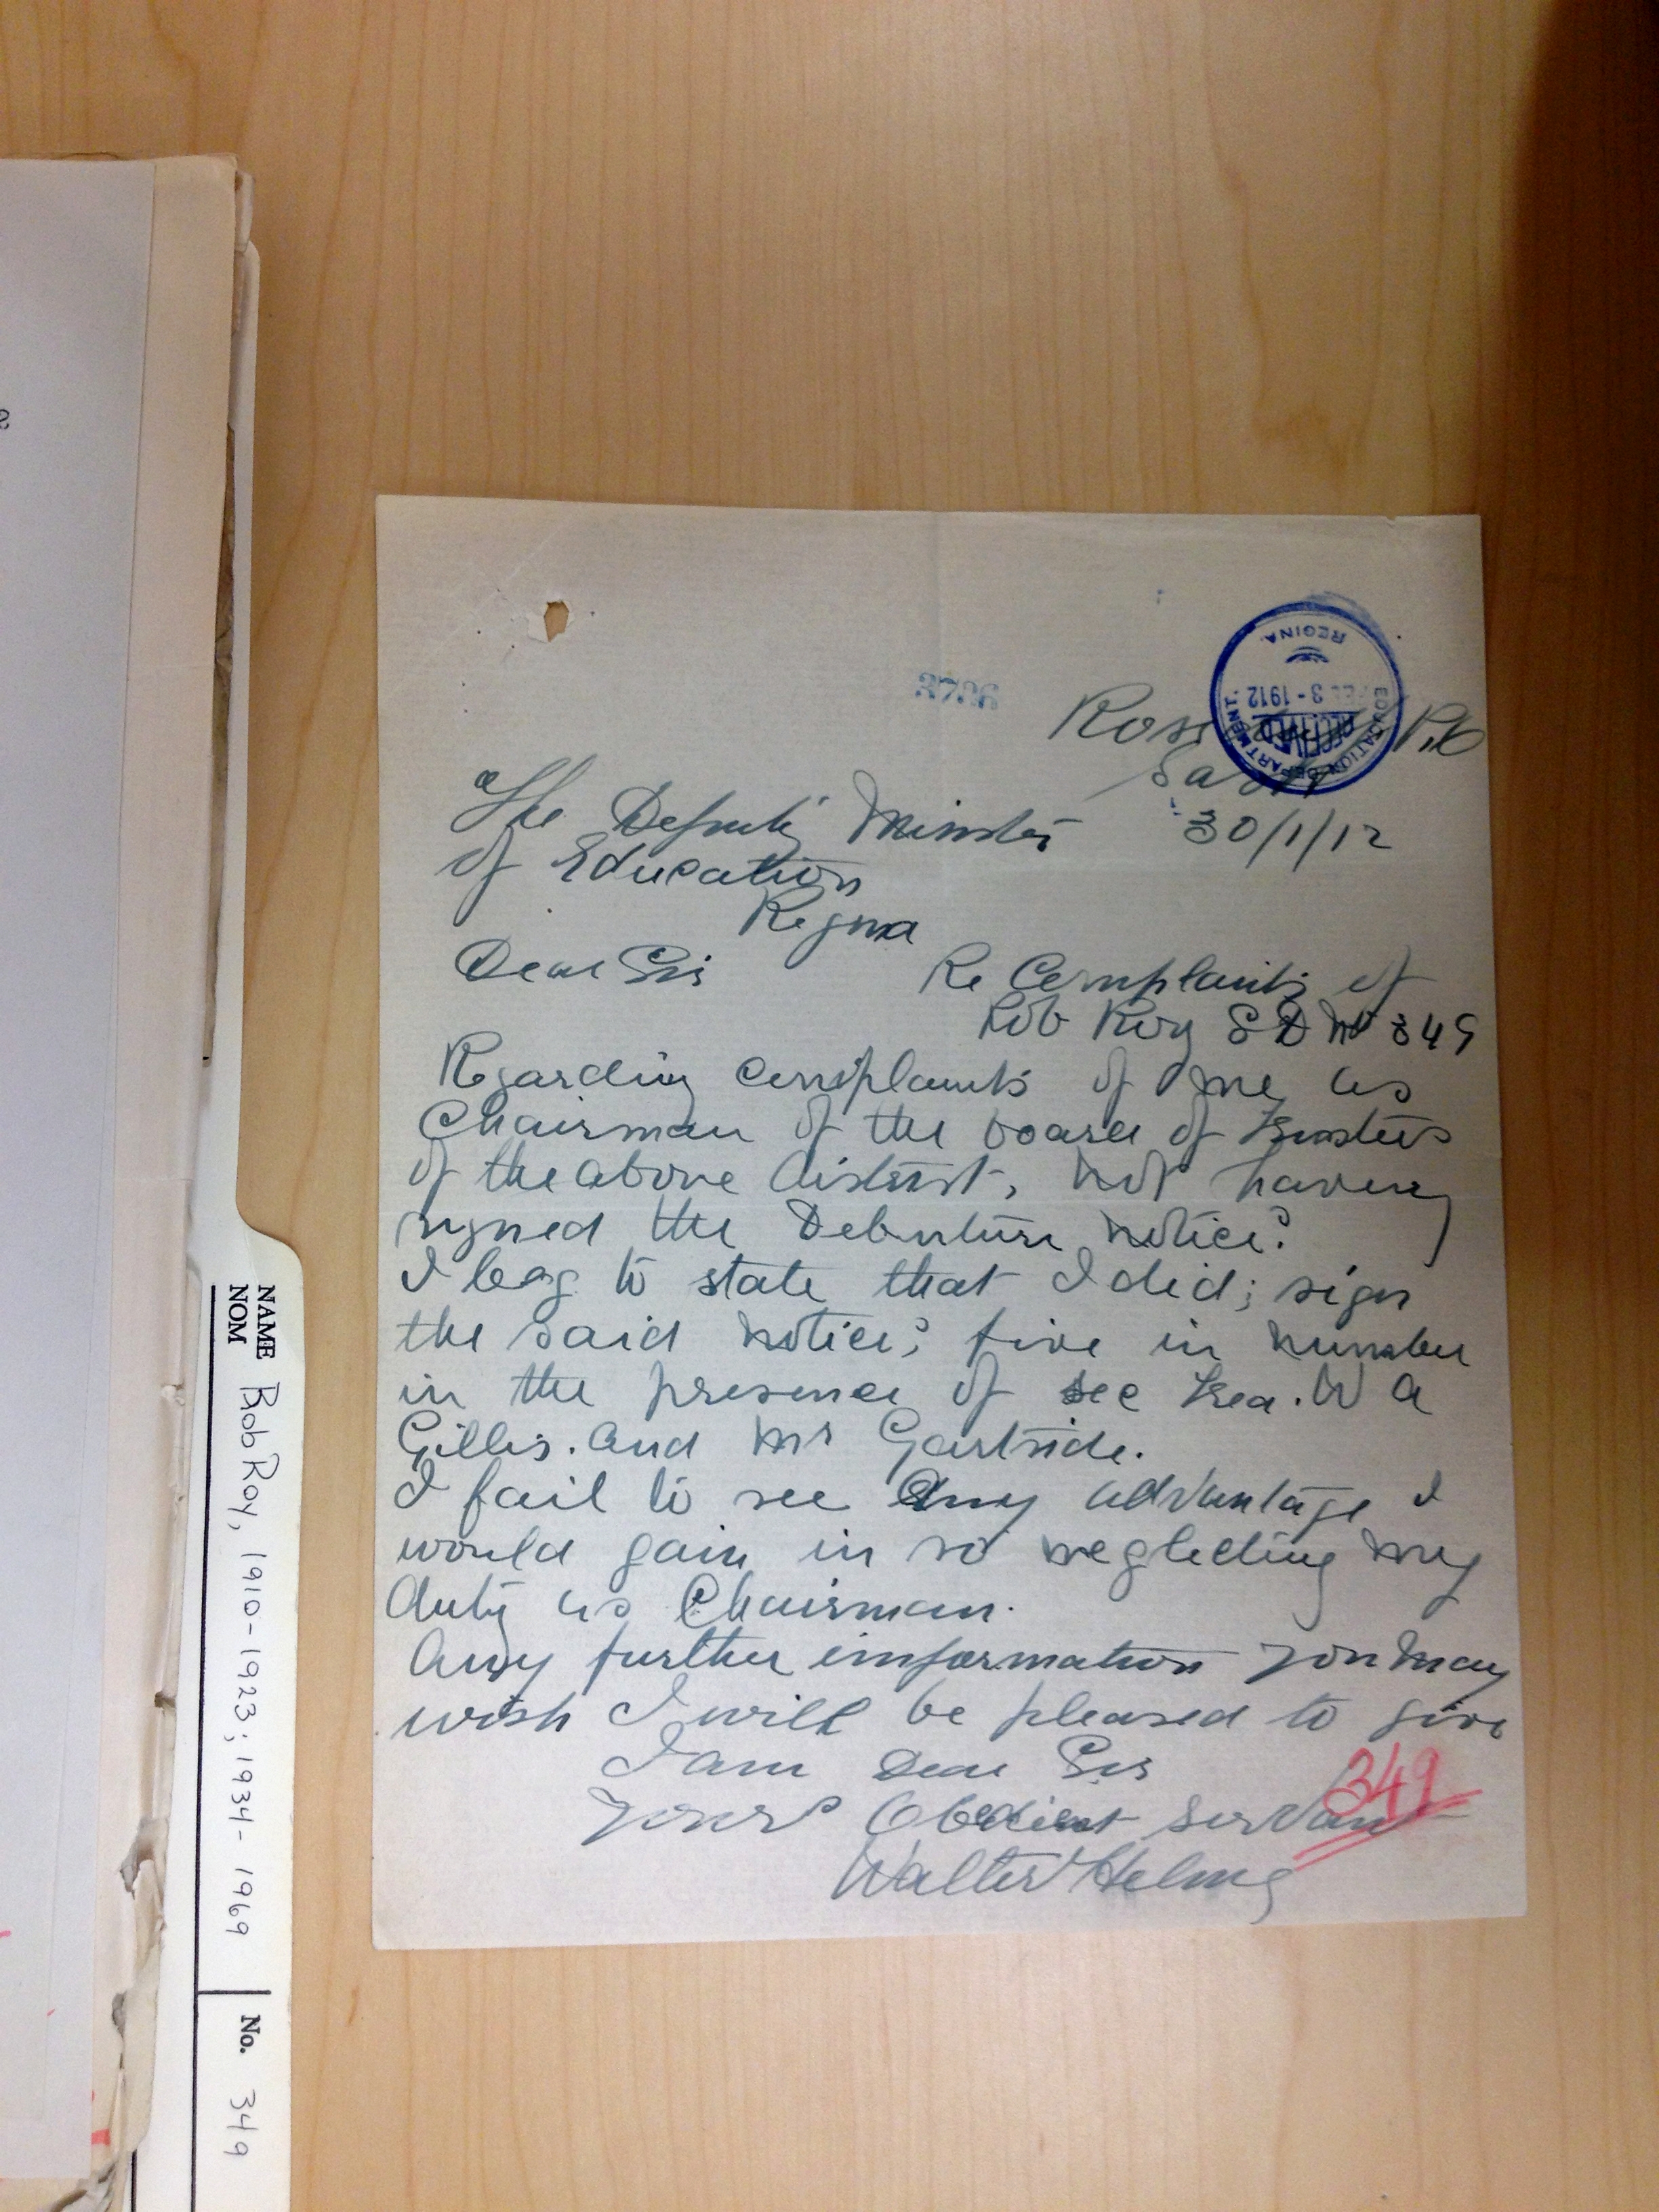 3736
EDUCATION DEPARTMENT.
RECEIVED
FEB 3 - 1912
REGINA.
P.O
Sask
30/1/12
The Deputy Minister
of Education
Regina
Dear Sir Re Complaints of
Rob Roy S D No 349
Regarding complaints of me as
Chairman of the board of trustees
of the above district, not having
signed the Debenture notices
I beg to state that I did; sign
the said notices five in number
in the presence of sec trea. W A
Gillis. and Mr Gartside.
I fail to see any advantage I
would gain in so neglecting my
duty as Chairman.
Any further imformation you may
wish I will be pleased to give
I am Dear Sir
Yours Obedient Servant
Walter
349
NAME
NOM
Bob Roy, 1910-1923; 1934-1969
No. 349